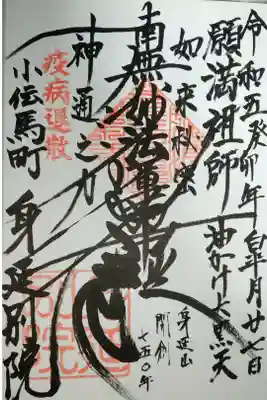 令和五癸卯年皐月廿七日
願満祖師 油かけ大黒天
如来秘密
身延山
開創
七五〇年
南無妙法蓮華経
神通之力
疫病退散
小伝馬町 身延別院